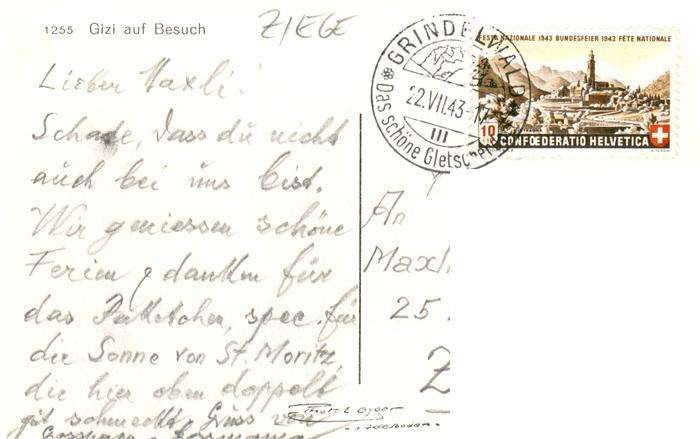 1255 Gizi auf Besuch
ZIEGE
Lieber Maxli!
Schade, dass du nicht
auch bei uns bist.
Wir geniessen schöne
Ferien & danken für
das Päcktchen, spec. für
die Sonne von St. Moritz,
die hier oben doppelt
gut schmeckt. Gruss von
GRINDELWALD
22.VII.43-17
III
Das schöne Gletsch
FESTA NAZIONALE 1943 BUNDESFEIER 1943 FÊTE NATIONALE
10
CONFŒDERATIO HELVETICA
An
Maxli
25.
Z